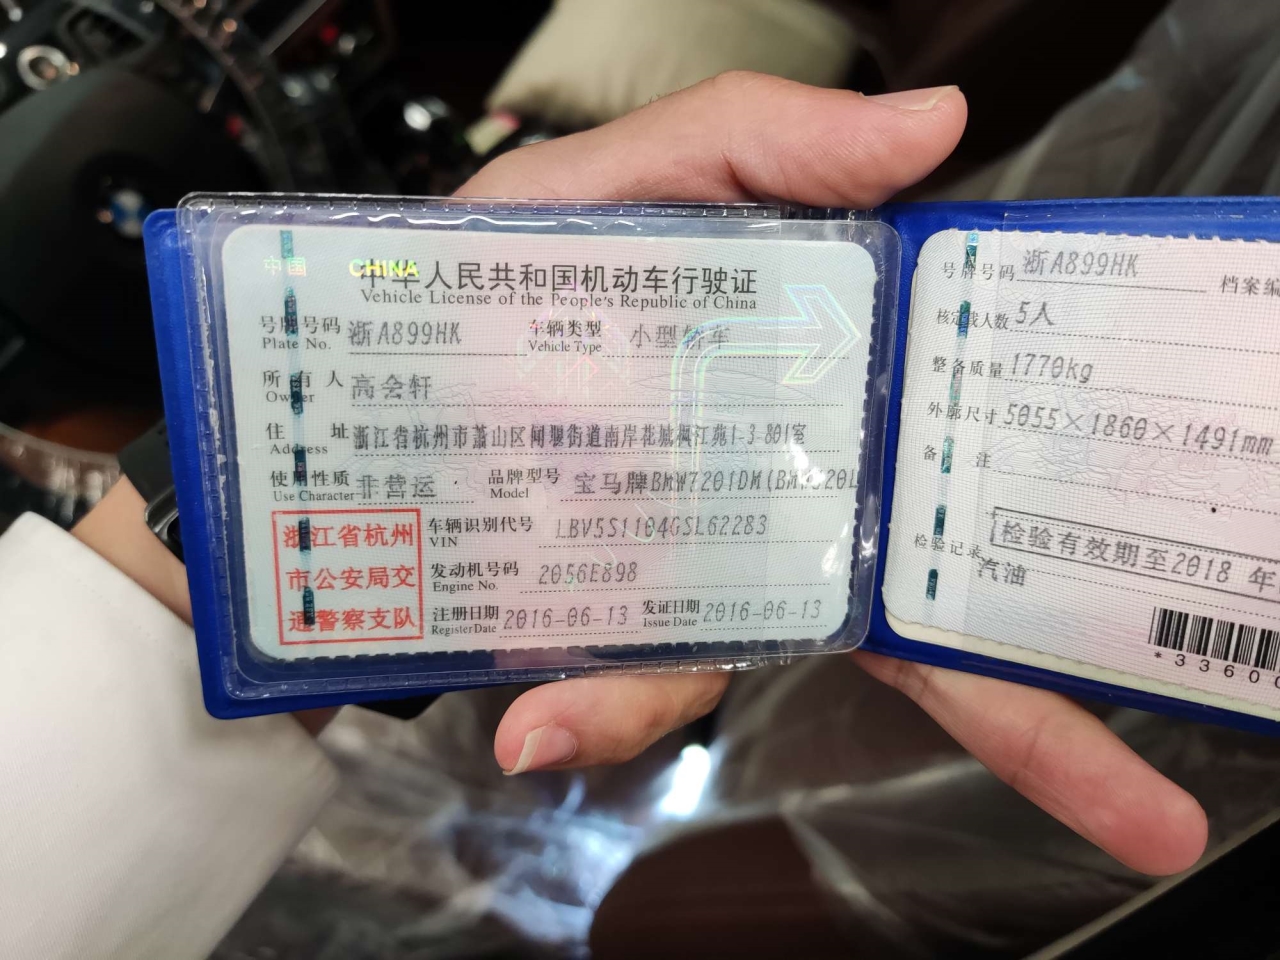 中国 CHINA
中华人民共和国机动车行驶证
Vehicle License of the People's Republic of China
号牌号码 浙A899HK 车辆类型 小型轿车
Plate No. Vehicle Type
所有人 高会轩
Owner
住址 浙江省杭州市萧山区闻堰街道南岸花城枫江苑1-3-801室
Address
使用性质 非营运 品牌型号 宝马牌BMW7201DM(BMW520L
Use Character Model
浙江省杭州
市公安局交
通警察支队
车辆识别代号 LBV5S1104GSL62283
VIN
发动机号码 2056E898
Engine No.
注册日期 2016-06-13 发证日期 2016-06-13
Register Date Issue Date
号牌号码 浙A899HK 档案编
核定载人数 5人
整备质量 1770kg
外廓尺寸 5055×1860×1491mm
备注
检验有效期至2018年
检验记录
汽油
*33600